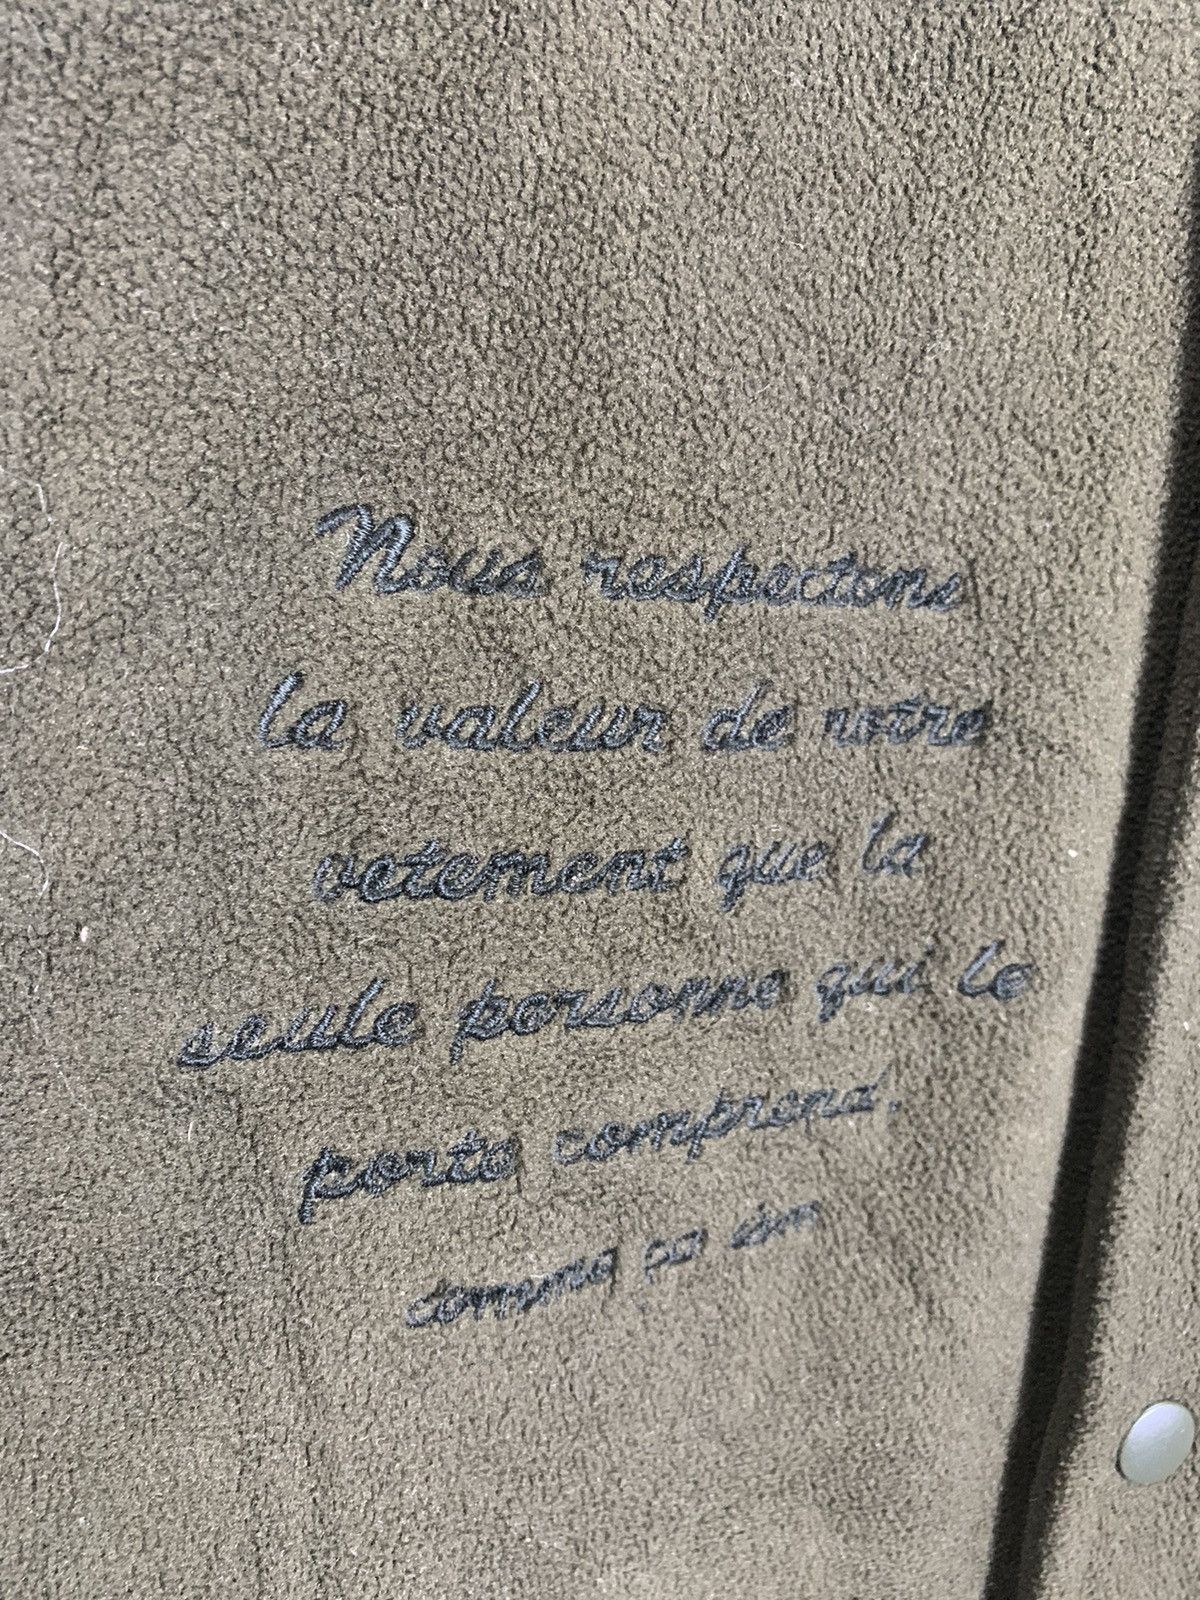 Nous respectons
la valeur de notre
vetement que la
seule personne qui le
porte comprend.
comme